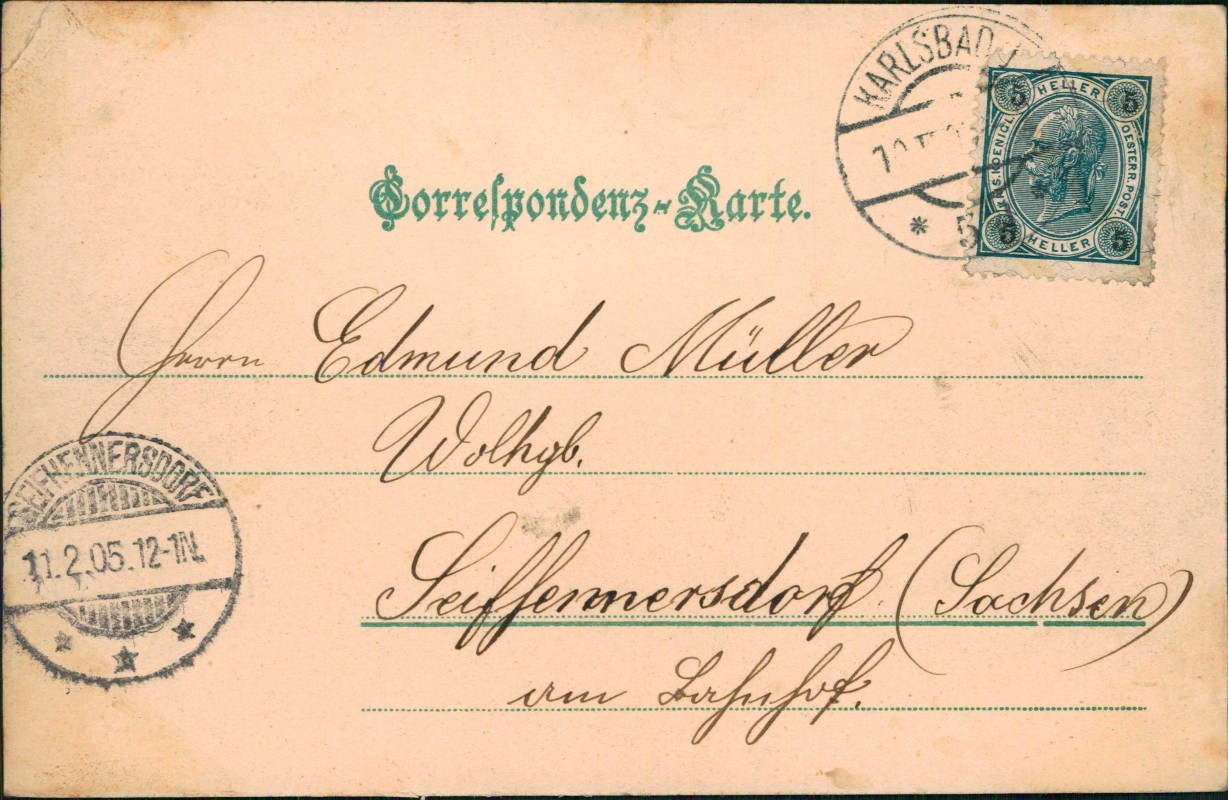 KARLSBAD
5 HELLER 5
OESTERR. POST.
5 HELLER 5
Correspondenz-Karte.
Herrn Edmund Müller
Wolhgb.
SEIFHENNERSDORF
11.2.05.12-1N.
Seiffennersdorf (Sachsen)
am Bahnhof.